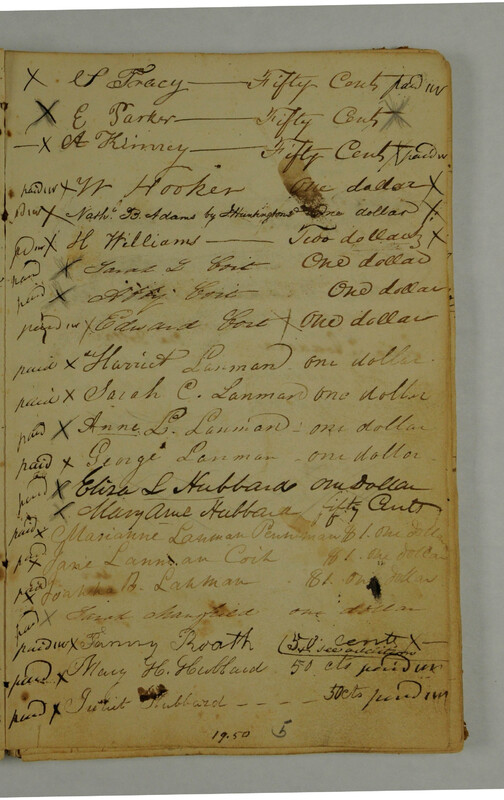 x S Tracy — Fifty Cents paid
x E Parker — Fifty Cents x
x A Kinney — Fifty Cents x paid
paid x W Hooker One dollar x
pd x Nath. B. Adams by J Huntington One dollar x
pd x H Williams — Two dollars x
paid x Sarah L Coit One dollar
paid x Coit One dollar
paid x Edward Coit One dollar
paid x Harriet Lanman one dollar
paid x Sarah C. Lanman one dollar
paid x Anne L. Lanman - one dollar
paid x George Lanman - one dollar
paid x Eliza L Hubbard one Dollar
x Mary Anne Hubbard fifty Cents
paid x Marianne Lanman Penniman $1. one dollar
paid Jane Lanman Coit $1. one dollar
paid x Joanna B. Lanman $1. one dollar
paid x one dollar
paid x Fanny Roath 50 cents x
paid x Mary H. Hubbard 50 cts paid
paid x Hubbard - - - - 50 cts paid
19.50 5